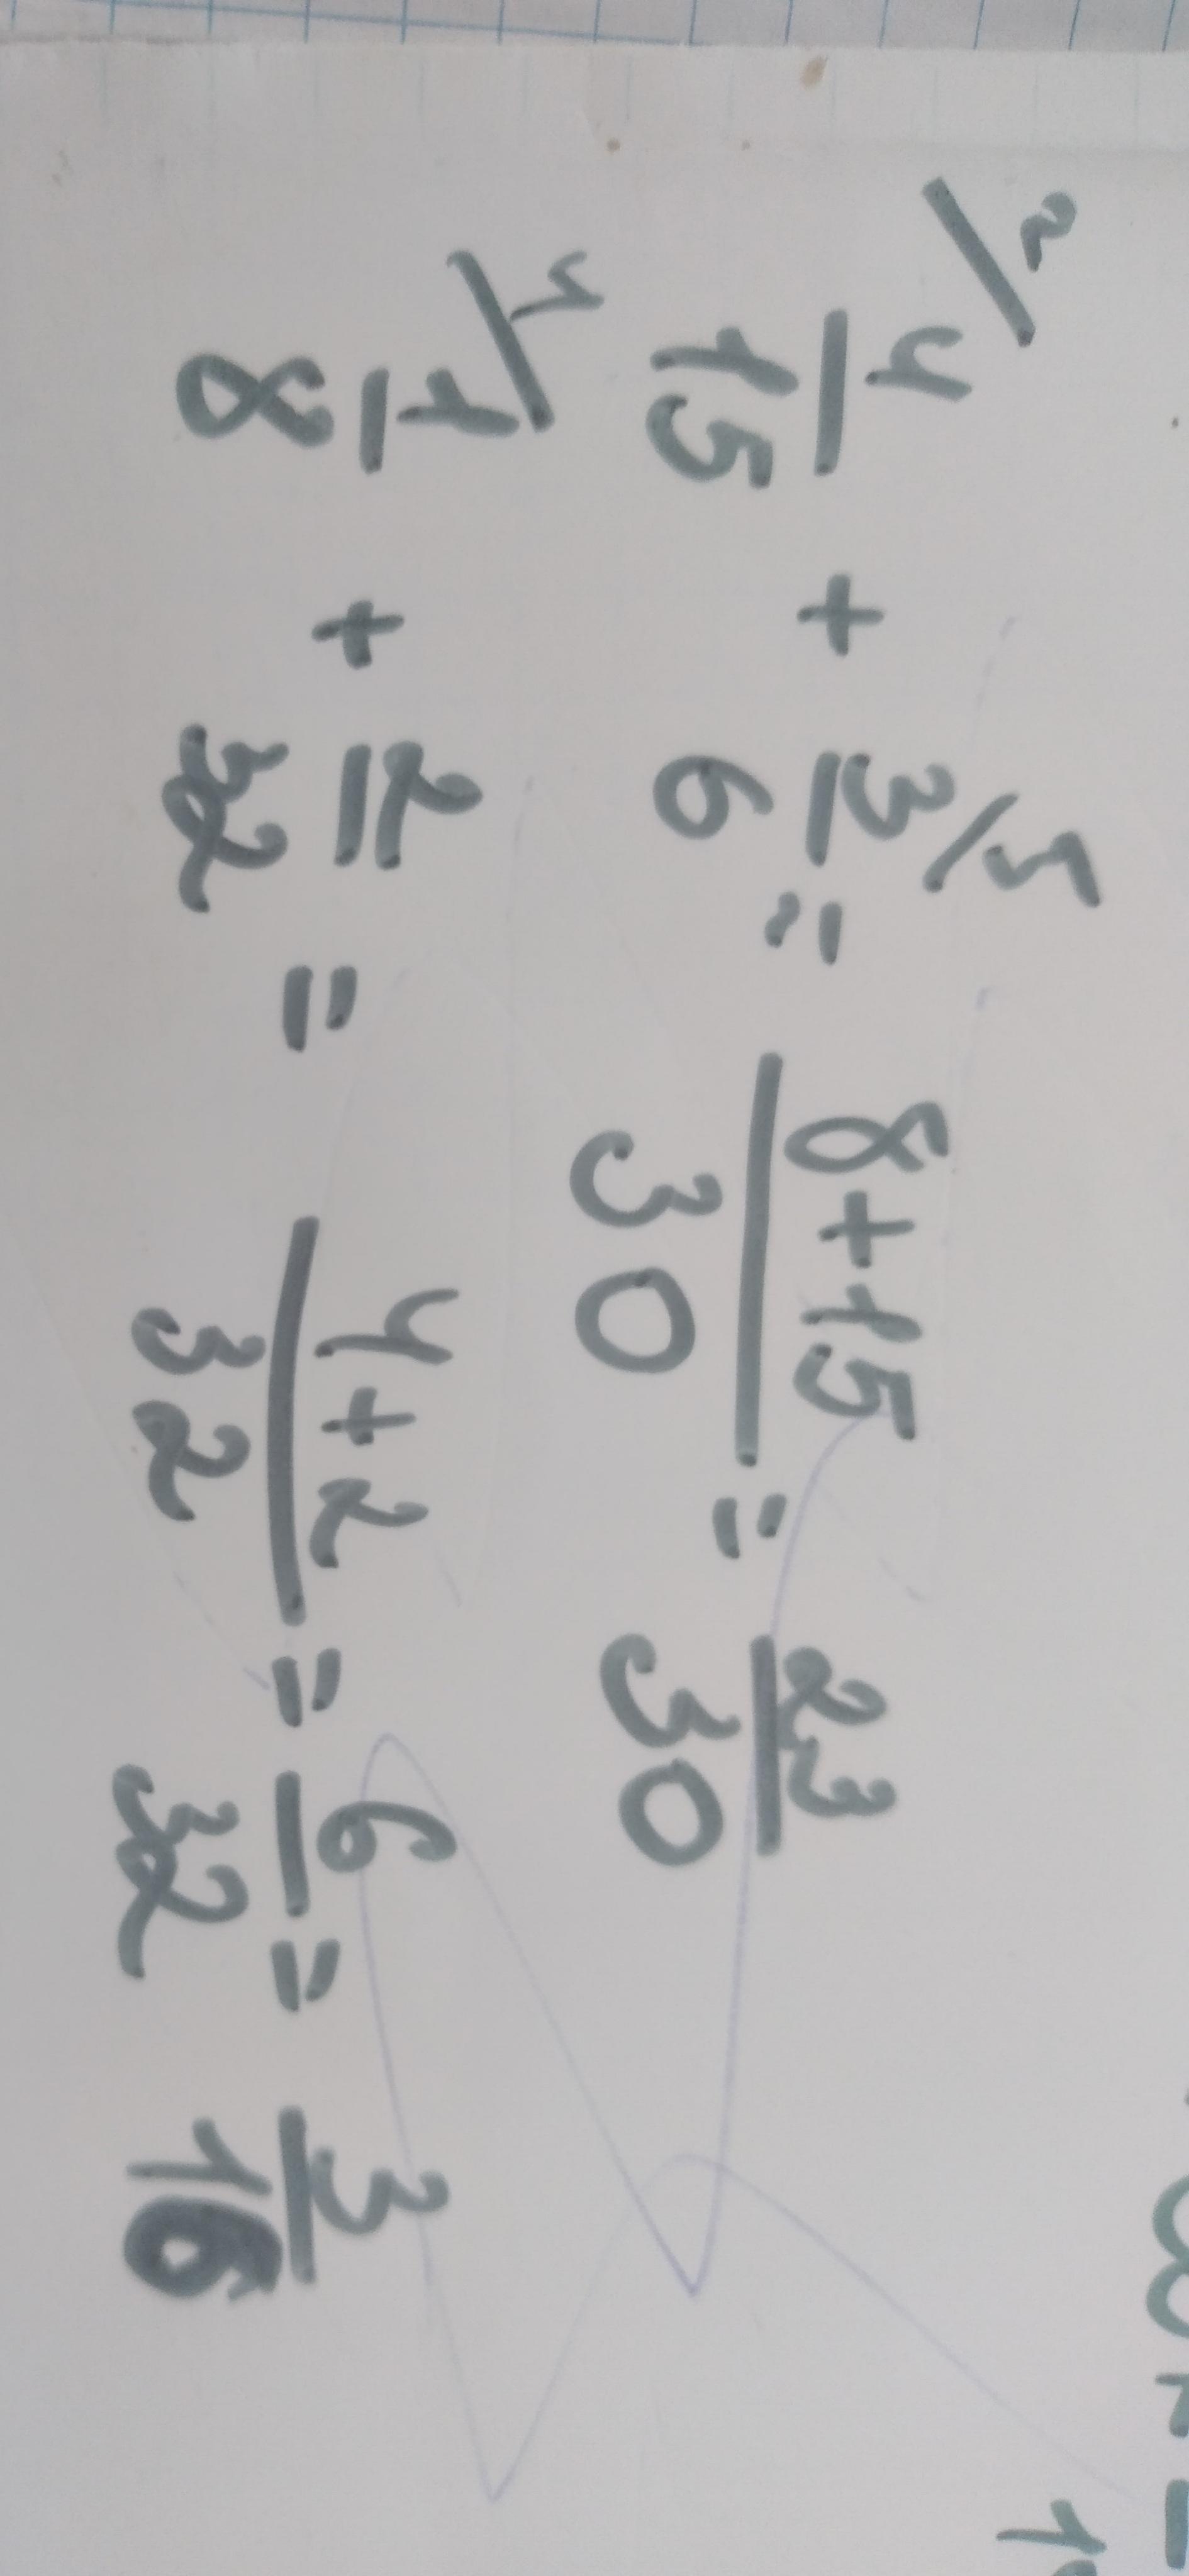 2/ 4/15 + 3/6 /5 = (8+15)/30 = 23/30
4/ 1/8 + 2/32 = (4+2)/32 = 6/32 = 3/16